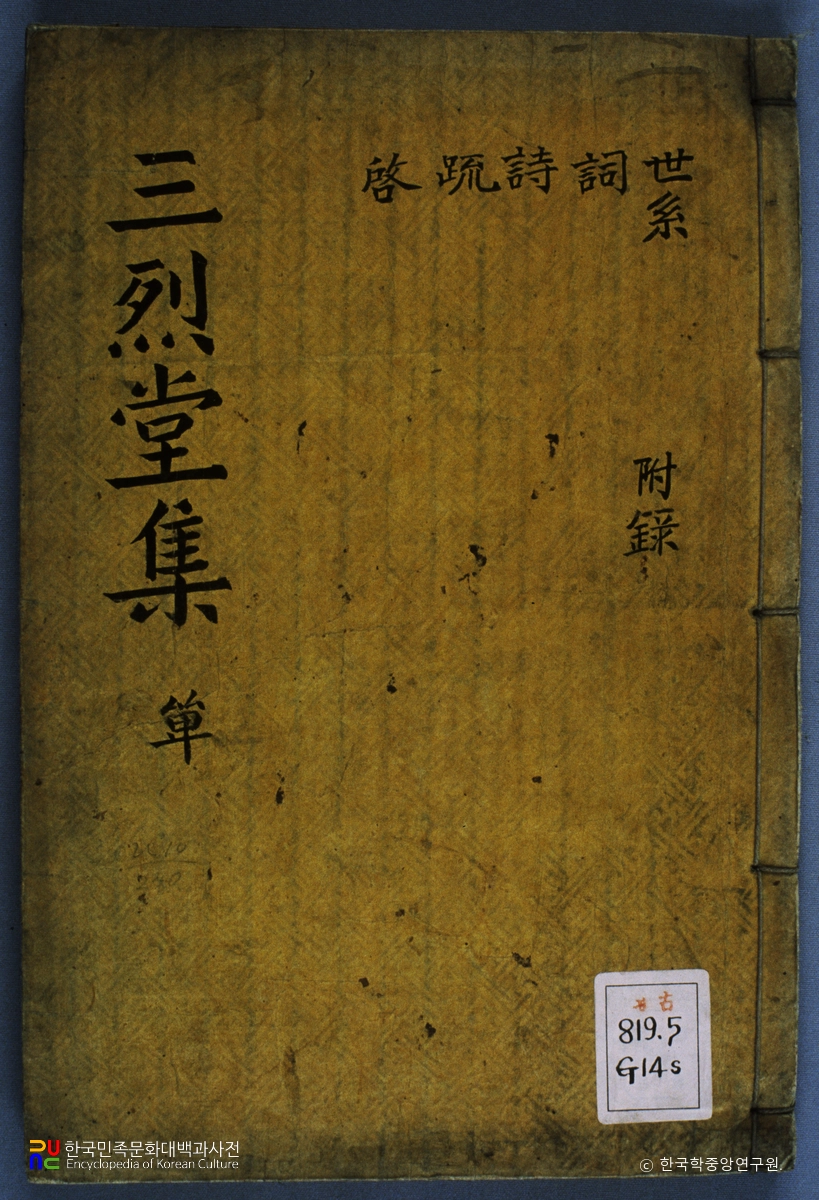 世系
詞
詩
疏
啓
附錄
三烈堂集 單
古
819.5
G14s
한국민족문화대백과사전
Encyclopedia of Korean Culture
© 한국학중앙연구원